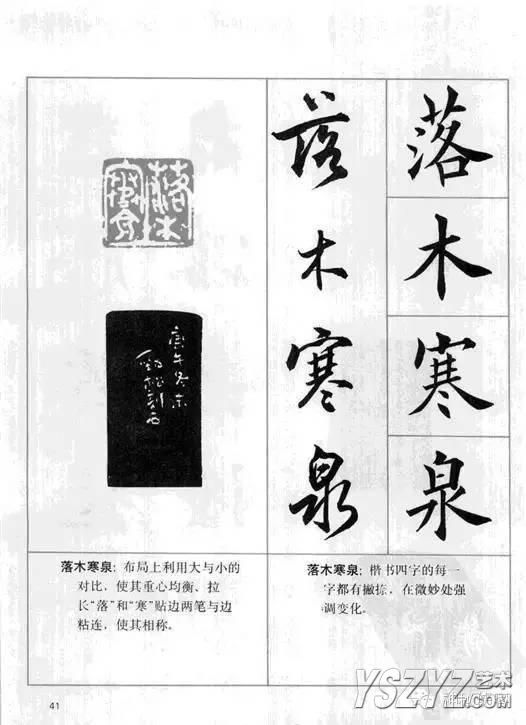 落木寒泉
落木寒泉
落木寒泉
庚午冬末
刻石
落木寒泉：布局上利用大与小的
对比，使其重心均衡、拉
长“落”和“寒”贴边两笔与边
粘连，使其相称。
落木寒泉：楷书四字的每一
字都有撇捺，在微妙处强
调变化。
41
YSZYZ艺术
.com